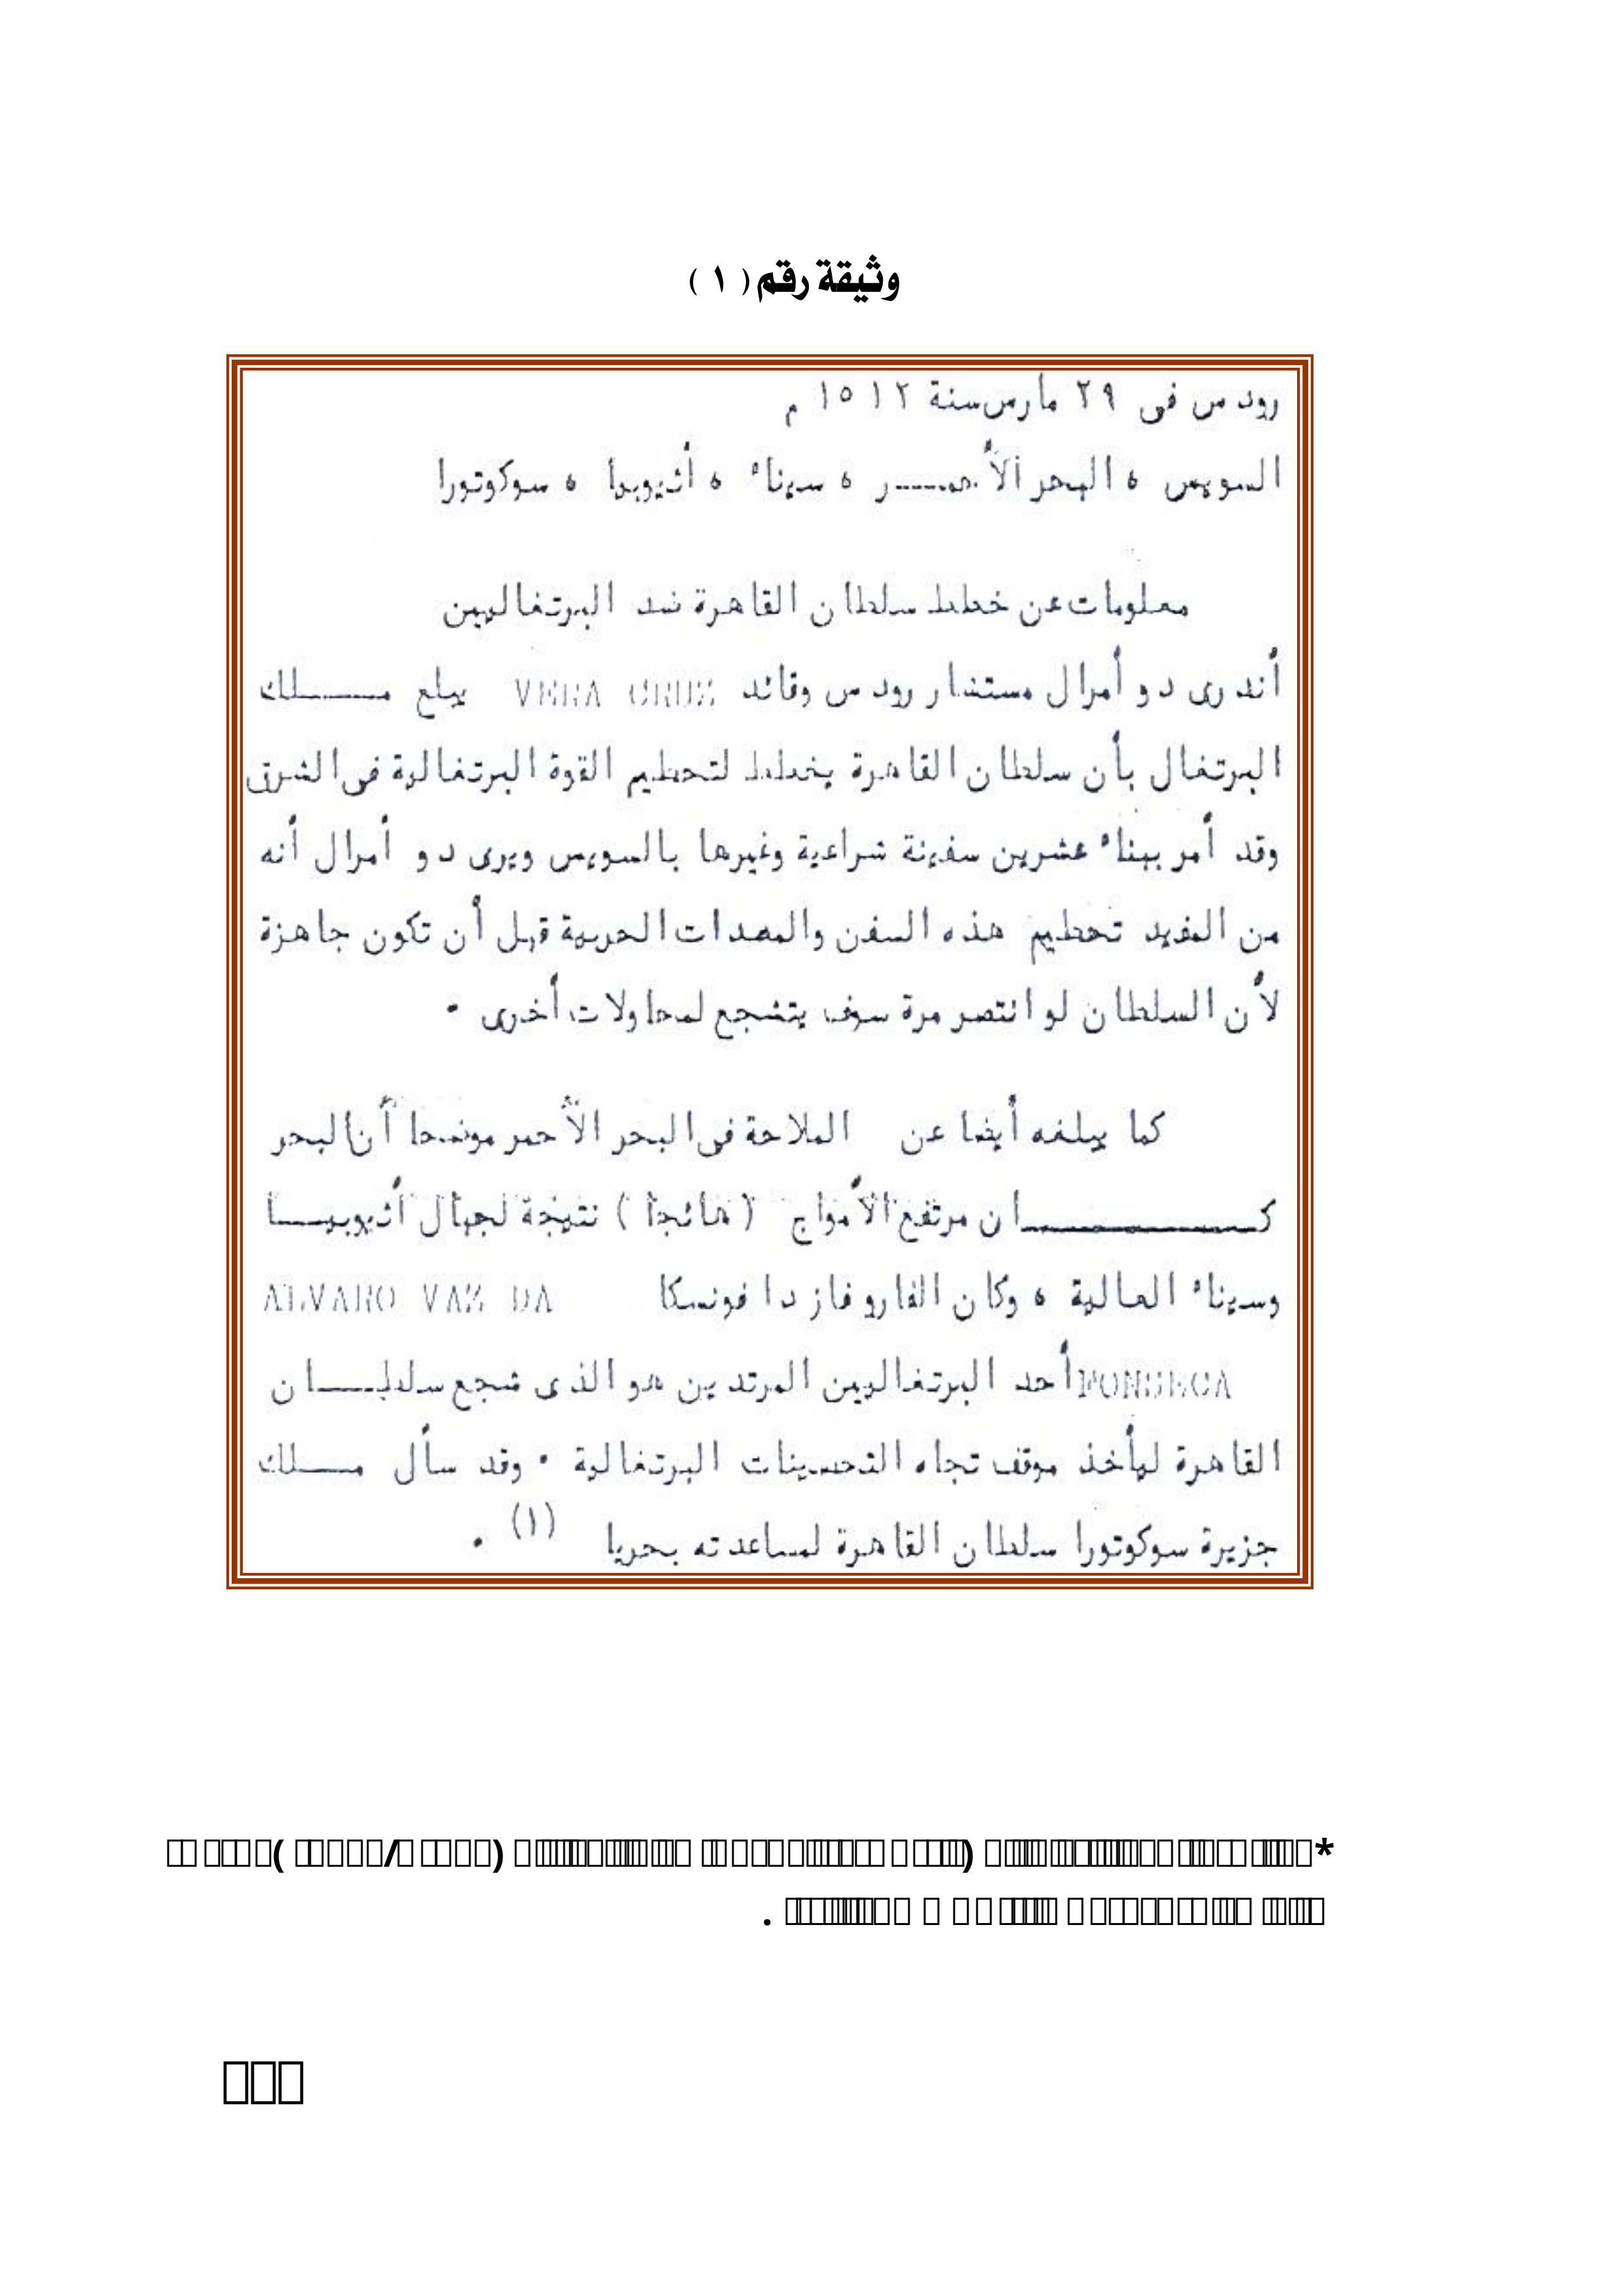 وثيقة رقم ( ١ )
رودس فى ٢٩ مارس سنة ١٥١٢ م
السويس ، البحر الأحمـــر ، سيناء ، أثيوبيا ، سوكوتورا
معلومات عن خطط سلطان القاهرة ضد البرتغاليين
أندرى دو أمرال مستشار رودس وقائد VERA CRUZ يبلغ مـــلك
البرتغال بأن سلطان القاهرة يخطط لتحطيم القوة البرتغالية فى الشرق
وقد أمر ببناء عشرين سفينة شراعية وغيرها بالسويس ويرى دو أمرال أنه
من المفيد تحطيم هذه السفن والمعدات الحربية قبل أن تكون جاهزة
لأن السلطان لو انتصر مرة سوف يتشجع لمحاولات أخرى .
كما يبلغه أيضا عن الملاحة فى البحر الأحمر موضحا أن البحر
كــــــــان مرتفع الأمواج ( هائجا ) نتيجة لجبال أثيوبيـــا
وسيناء العالية ، وكان الفارو فاز دا فونسكا ALVARO VAZ DA
FONSECA أحد البرتغاليين المرتدين هو الذى شجع سلطـــان
القاهرة ليأخذ موقف تجاه التحسينات البرتغالية . وقد سأل مـــلك
جزيرة سوكوتورا سلطان القاهرة لمساعدته بحريا (١) .